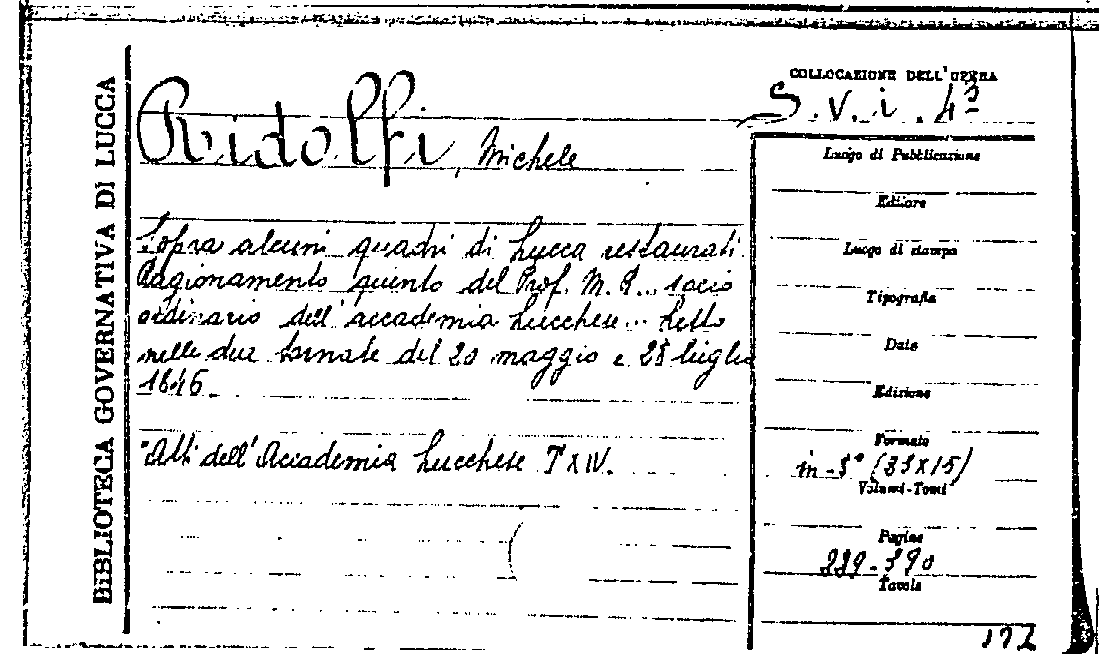 BIBLIOTECA GOVERNATIVA DI LUCCA
Ridolfi, Michele
Sopra alcuni quadri di Lucca restaurati.
Ragionamento quinto del Prof. M. R... socio
ordinario dell'accademia Lucchese... Letto
nelle due tornate del 20 maggio e 28 luglio
1846.
"Atti dell'Accademia Lucchese T XIV.
COLLOCAZIONE DELL'OPERA
S. V. i. 43
Luogo di Pubblicazione
Editore
Luogo di stampa
Tipografia
Data
Edizione
Formato
in-8° (23x15)
Volumi-Tomi
Pagine
Tavole